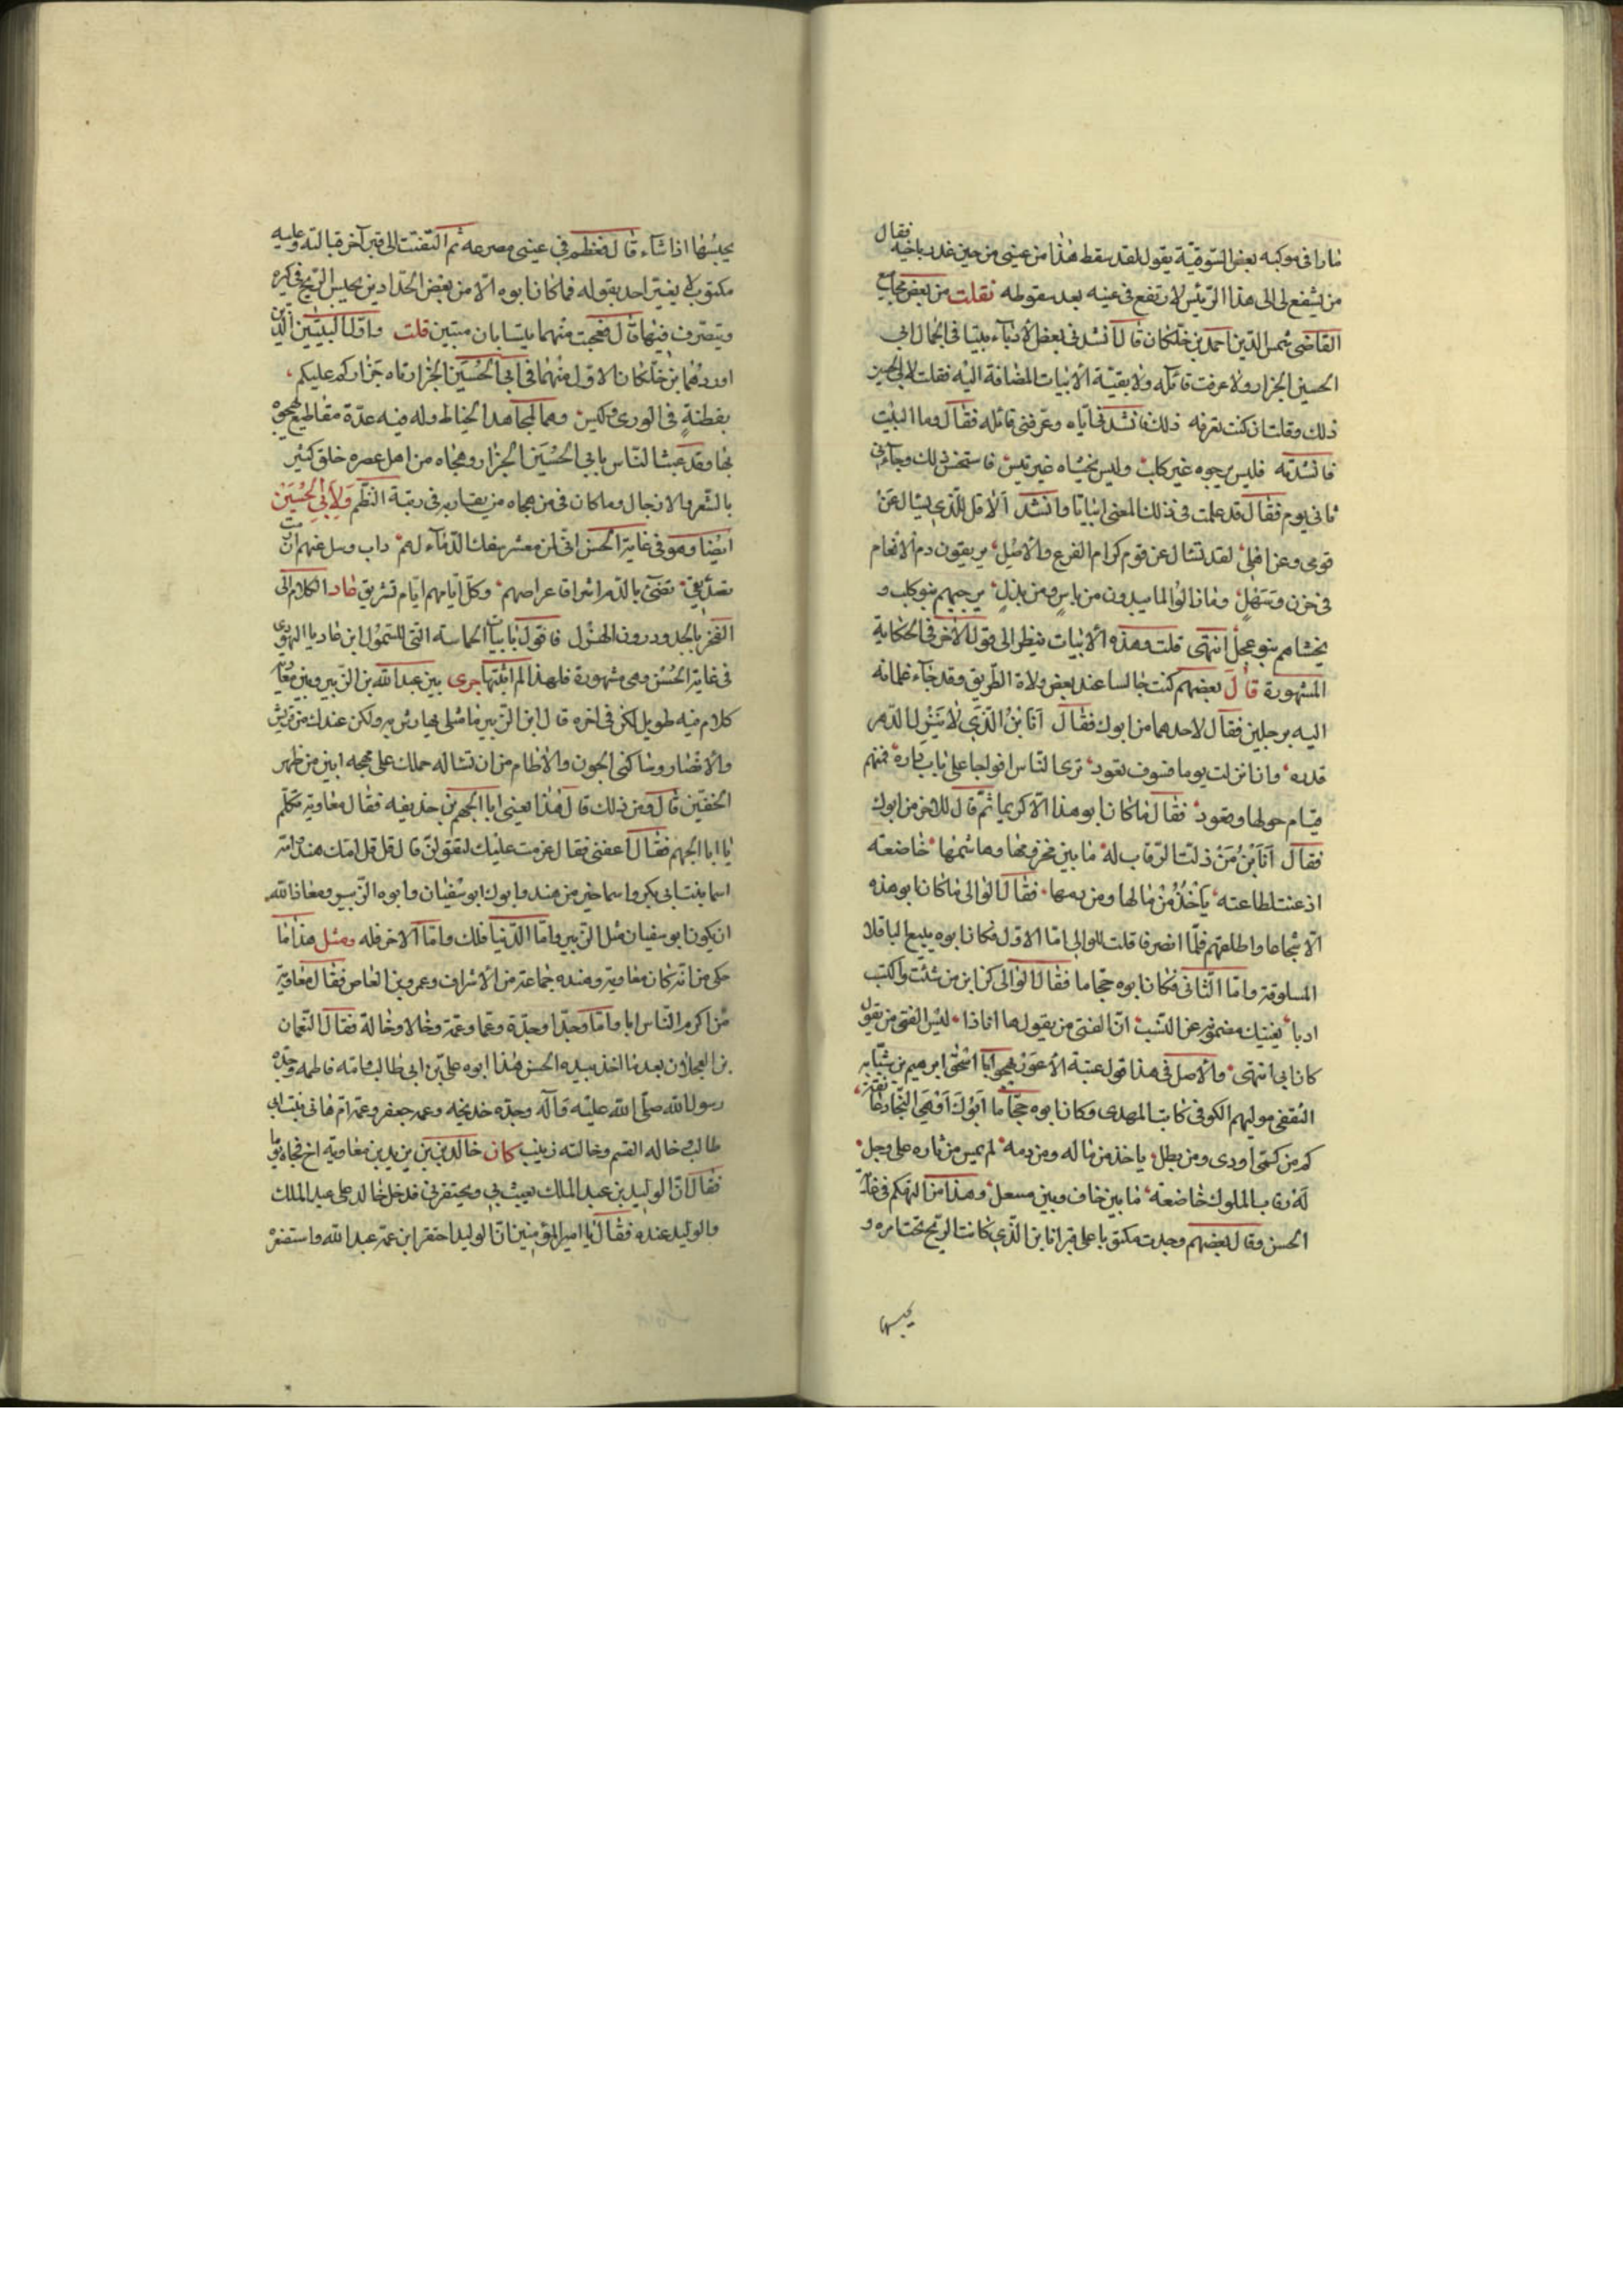 مارا فى موكبه بعض السوقية يقول لقد سقط هذا من عينى من حين غدر باخيه فقال
من يشفع لى الى هذا الرئيس لارتفع فى عينه بعد سقوطه نقلت من بعض مجاميع
القاضى شمس الدين احمد بن خلكان قال انشدنى بعض الادباء بيتا فى الجمال ابى
الحسين الجزار ولا عرفت قائله ولا بقية الابيات المضافة اليه فقلت لابى الحسين
ذلك وقلت ان كنت تعرفه فانشدنى اياه وعرفنى قائله فقال وما البيت
فانشدته فليس يرجوه غير كلب وليس يخشاه غير تيس فاستحسن ذلك وجاءنى
ثانى يوم فقال قد علمت فى ذلك المعنى ابياتا وانشد الا قل للذى يسال عن
قومى وعن اهلى لقد تسال عن قوم كرام الفرع والاصل يريقون دم الانعام
فى حزن وسهل وما زالوا لما يبدون من باس ومن بذل يرجيهم بنو كلب و
يخشاهم بنو عجل انتهى قلت وهذه الابيات ينظر الى قوله الاخر فى الحكاية
المشهورة قال بعضهم كنت جالسا عند بعض ولاة الطريق وقد جاء غلمانه
اليه برجلين فقال لاحدهما من ابوك فقال انا ابن الذى لا ينزل الدهر
قدره وان نزلت يوما فسوف تعود ترى الناس افواجا على باب داره فمنهم
قيام حولها وقعود فقال ما كان ابو هذا الا كريما ثم قال للاخر من ابوك
فقال انا ابن من ذلت الرقاب له ما بين مخزومها وهاشمها خاضعة
اذعنت لطاعته ياخذ من مالها ومن دمها فقال الوالى ما كان ابو هذه
الا شجاعا واطلقهم فلما انصرفا قلت للوالى اما الاول فكان ابوه يبيع الباقلا
المسلوقة واما الثانى فكان ابوه حجاما فقال الوالى كن ابن من شئت واكتسب
ادبا يغنيك مضمونه عن النسب ان الفتى من يقول ها انا ذا ليس الفتى من يقول
كان ابى انتهى والاصل فى هذا قول عتبة الاعور يهجو ابا اسحق ابرهيم بن شبابه
الثقفى موليهم الكوفى كاتب المهدى وكان ابوه حجاما ابوك اوهى النجاد عاتقه
كم من كمى اودى ومن بطل ياخذ من ماله ومن دمه لم يمس من ثاره على وجل
له رقاب الملوك خاضعة ما بين خاف وبين منتعل وهذا من التهكم فى غاية
الحسن وقال بعضهم وجدت مكتوبا على قبر انا ابن الذى كانت الريح تحت امره و
يحبسها
يحبسها اذا شاء قال فعظم فى عينى مصرعه ثم التفتت الى قبر آخر قبالته وعليه
مكتوب لا يغتر احد بقوله فما كان ابوه الا من بعض الحدادين يحبس الريح فى كيره
ويتصرف فيها قال فعجبت منهما يتسابان ميتين قلت واما البيتين الذين
اوردهما ابن خلكان الاول منهما فى ابى الحسين الجزار تاه جزاركم عليكم
بفطنة فى الورى وكيس وهما لمجاهد الخياط وله فيه عدة مقاطيع هجوه
بها وقد عبث الناس بابى الحسين الجزار وهجاه من اهل عصره خلق كثير
بالشعر والازجال وما كان فى من هجاه من يقاربه فى رتبة النظم ولابى الحسين
ايضا وهو فى غاية الحسن انى لمن معشر سفك الدماء لهم داب وسل عنهم ان رمت
تصديقى تضىء بالدم اشراقا عراصهم وكل ايامهم ايام تشريق عاد الكلام الى
الفخر بالجد ودون الهزل فاقول ابيات الحماسة التى للسموال ابن عاديا اليهودى
فى غاية الحسن وهى مشهورة فلهذا لم اثبتها جرى بين عبد الله بن الزبير وبين معوية
كلام فيه طويل لكن فى اخره قال ابن الزبير ما مثلى يهارش به ولكن عندك من قريش
والانصار وساكنى الحجون والاطام من ان تساله حملك على محجه ابين من ظهر
الخفين قال ومن ذلك قال هذا يعنى ابا الجهم بن حذيفه فقال معاوية تكلم
يا ابا الجهم فقال اعفنى فقال عزمت عليك لتقولن قال قل قل امك هند وامه
اسما بنت ابى بكر واسما خير من هند وابوك ابو سفيان وابوه الزبير ومعاذ الله
ان يكون ابو سفيان مثل الزبير واما الدنيا فلك واما الاخر فله ومثل هذا ما
حكى من انه كان معاوية وعنده جماعة من الاشراف وعمرو بن العاص فقال معاوية
من اكرم الناس ابا واما وجدا وجدة وعما وعمة وخالا وخالة فقال النعمان
بن العجلان بعد ما اخذ بيده الحسن هذا ابوه على بن ابى طالب وامه فاطمه وجده
رسول الله صلى الله عليه وآله وجدته خديجه وعمه جعفر وعمته ام هانى بنت ابى
طالب وخاله القسم وخالته زينب كان خالد بن يزيد بن معاوية اخ فجاه يوما
فقال ان الوليد بن عبد الملك يعبث بى ويحتقرنى فدخل خالد على عبد الملك
والوليد عنده فقال يا امير المؤمنين ان الوليد احتقر ابن عمه عبد الله واستصغره